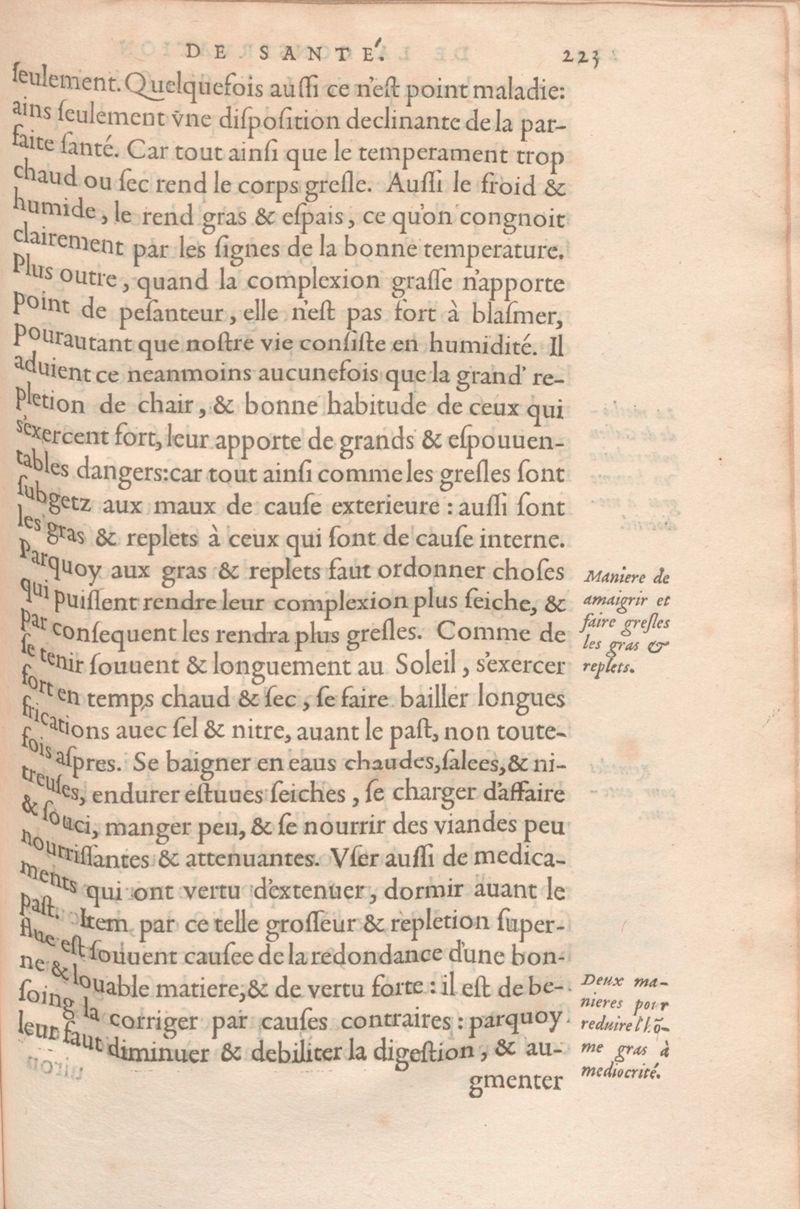 DE SANTÉ. 223
ſeulement. Quelquefois auſſi ce n'eſt point maladie:
ains ſeulement vne diſpoſition declinante de la par-
faite ſanté. Car tout ainſi que le temperament trop
chaud ou ſec rend le corps greſle. Auſſi le froid &
humide, le rend gras & eſpais, ce qu'on congnoit
clairement par les ſignes de la bonne temperature.
Plus outre, quand la complexion graſſe n'apporte
point de peſanteur, elle n'eſt pas fort à blaſmer,
pourautant que noſtre vie conſiſte en humidité. Il
aduient ce neanmoins aucunefois que la grand' re-
pletion de chair, & bonne habitude de ceux qui
s'exercent fort, leur apporte de grands & eſpouuen-
tables dangers: car tout ainſi comme les greſles ſont
ſubgetz aux maux de cauſe exterieure : auſſi ſont
les gras & replets à ceux qui ſont de cauſe interne.
Parquoy aux gras & replets faut ordonner choſes
qui puiſſent rendre leur complexion plus ſeiche, &
par conſequent les rendra plus greſles. Comme de
ſe tenir ſouuent & longuement au Soleil, s'exercer
fort en temps chaud & ſec, ſe faire bailler longues
frications auec ſel & nitre, auant le paſt, non toute-
fois aſpres. Se baigner en eaus chaudes, ſalees, & ni-
treuſes, endurer eſtuues ſeiches, ſe charger d'affaire
& ſouci, manger peu, & ſe nourrir des viandes peu
nourriſſantes & attenuantes. Vſer auſſi de medica-
ments qui ont vertu d'extenuer, dormir auant le
paſt. Item par ce telle groſſeur & repletion ſuper-
flue eſt ſouuent cauſee de la redondance d'une bon-
ne & louable matiere, & de vertu forte : il eſt de be-
ſoing la corriger par cauſes contraires : parquoy
leur faut diminuer & debiliter la digeſtion, & au-
gmenter
Maniere de
amaigrir et
faire greſles
les gras &
replets.
Deux ma-
nieres pour
reduire l'hõ-
me gras à
mediocrité.